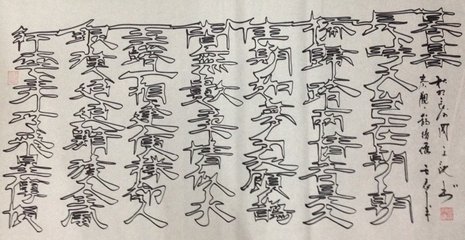 纖雲弄巧飛星傳恨
銀漢迢迢暗渡金風
玉露一相逢便勝却人
間無數柔情似水
佳期如夢忍顧鵲
橋歸路兩情若是久
長時又豈在朝朝
暮暮
秦觀鵲橋仙